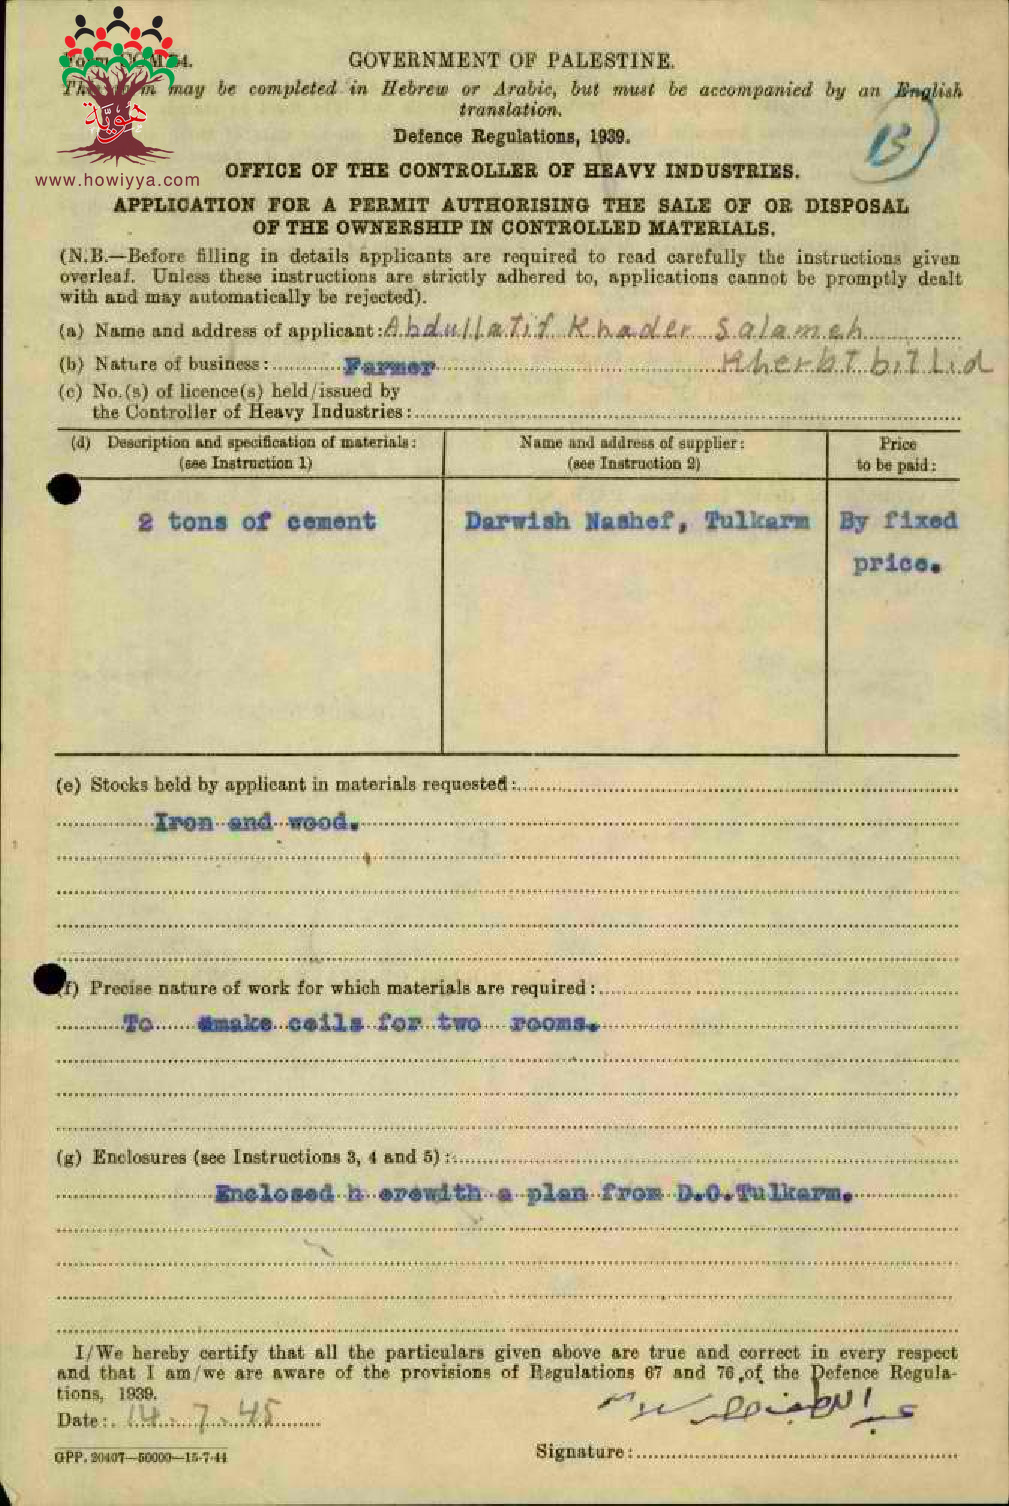 GOVERNMENT OF PALESTINE.
may be completed in Hebrew or Arabic, but must be accompanied by an English
translation.
Defence Regulations, 1939.
13
هوية
www.howiyya.com
OFFICE OF THE CONTROLLER OF HEAVY INDUSTRIES.
APPLICATION FOR A PERMIT AUTHORISING THE SALE OF OR DISPOSAL
OF THE OWNERSHIP IN CONTROLLED MATERIALS.
(N.B.—Before filling in details applicants are required to read carefully the instructions given
overleaf. Unless these instructions are strictly adhered to, applications cannot be promptly dealt
with and may automatically be rejected).
(a) Name and address of applicant: Abdullatif Khader Salameh
(b) Nature of business: Farmer Kherbt bit Lid
(c) No.(s) of licence(s) held/issued by
the Controller of Heavy Industries:
(d) Description and specification of materials: Name and address of supplier: Price
(see Instruction 1) (see Instruction 2) to be paid:
2 tons of cement Darwish Nashef, Tulkarm By fixed
price.
(e) Stocks held by applicant in materials requested:
Iron and wood.
(f) Precise nature of work for which materials are required:
To make ceils for two rooms.
(g) Enclosures (see Instructions 3, 4 and 5):
Enclosed h erewith a plan from D.O.Tulkarm.
I/We hereby certify that all the particulars given above are true and correct in every respect
and that I am/we are aware of the provisions of Regulations 67 and 76 of the Defence Regula-
tions, 1939.
Date: 14.7.45
عبد اللطيف خضر سلامه
Signature:
GPP. 20407—50000—15-7-44